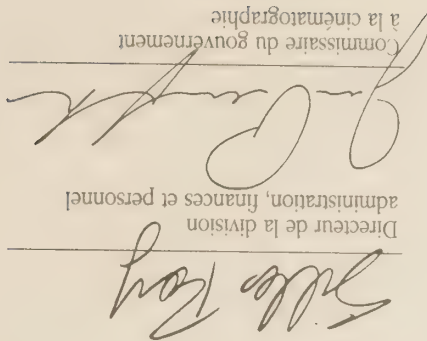 Gilles Roy
Directeur de la division
administration, finances et personnel
Commissaire du gouvernement
à la cinématographie